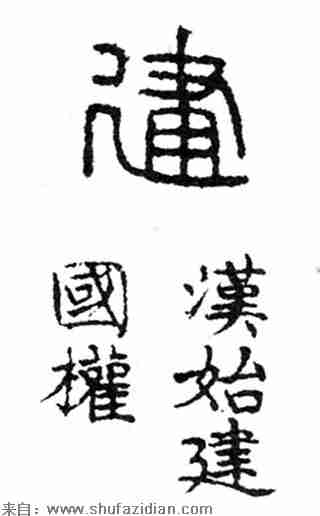 建
漢始建
國權
来自：www.shufazidian.com